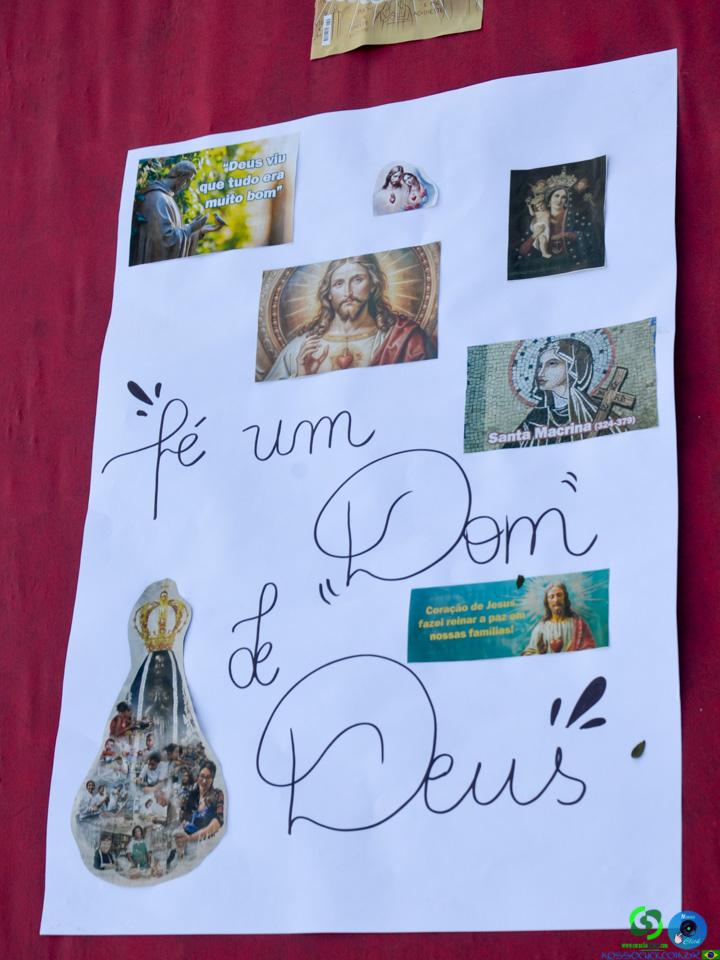 "Deus viu
que tudo era
muito bom"
Santa Macrina (324-379)
fé um
"Dom"
de
Coração de Jesus,
fazei reinar a paz em
nossas famílias!
Deus